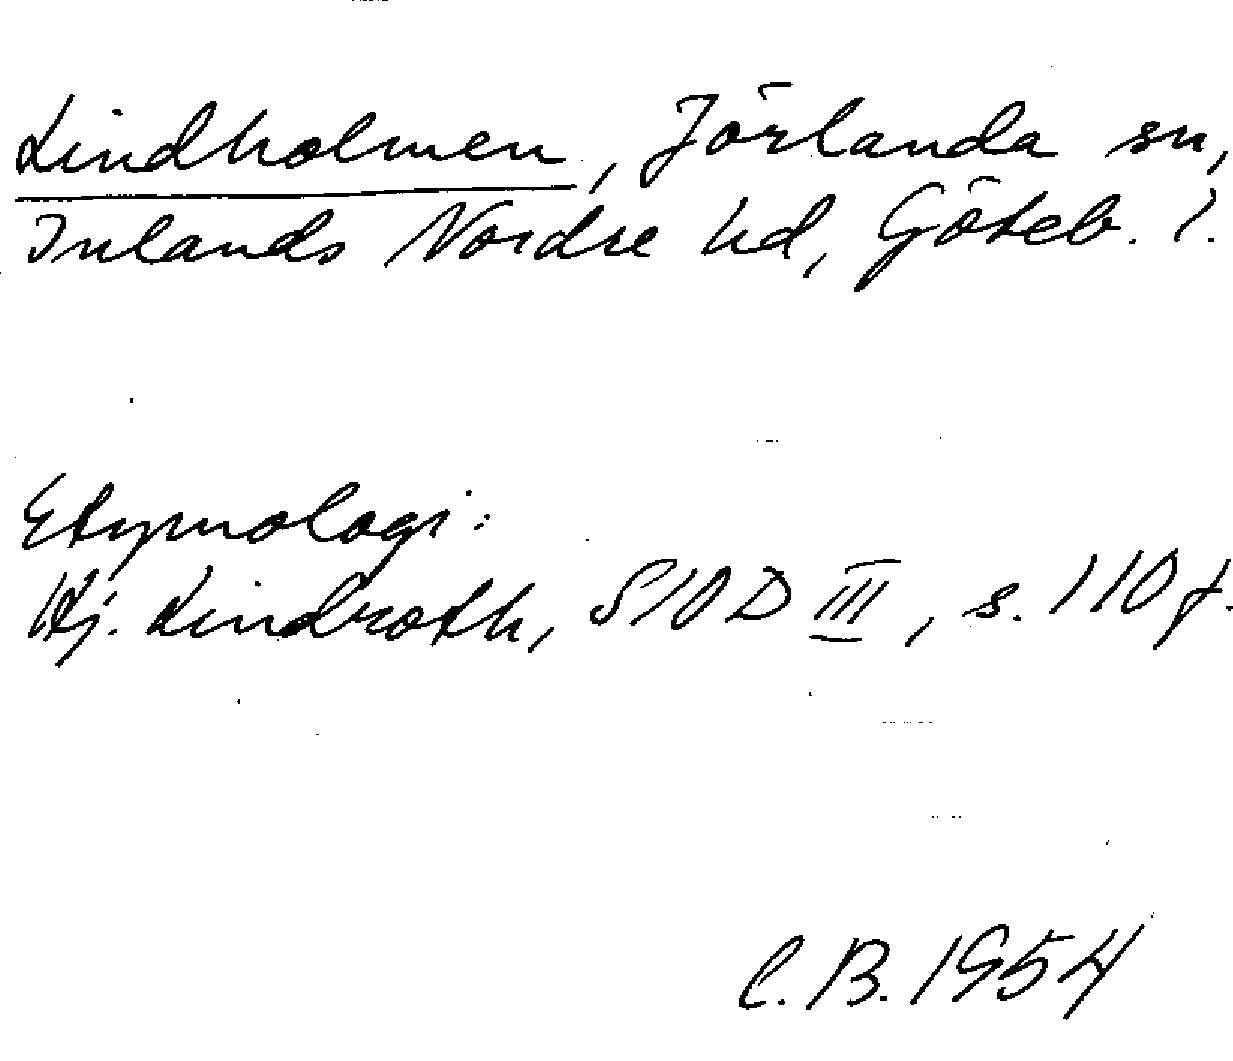 Lindholmen, Jörlanda sn,
Inlands Nordre hd, Göteb. l.
Etymologi:
Hj. Lindroth, SIOD III, s. 110 f.
C.B. 1954